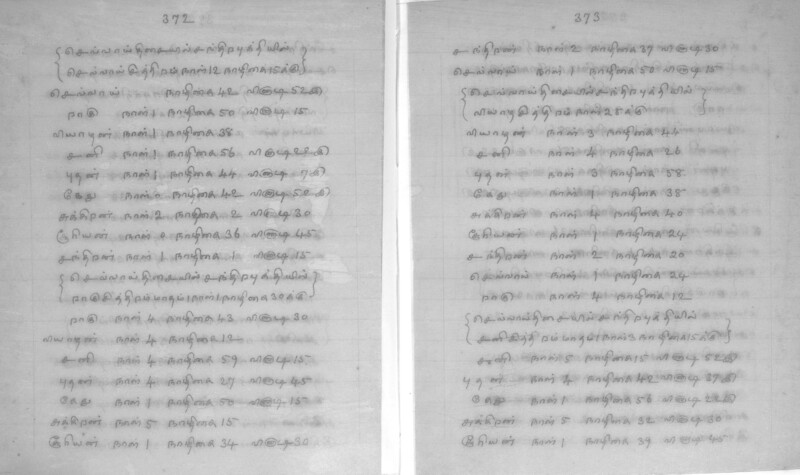 372
{செவ்வாய்திசையில் சந்திரபுத்தியில்}
{செவ்வாய்கித்திரம் நாள் 12 நாழிகை 15க்கு}
செவ்வாய் நாழிகை 42 வினாடி 52௫
ராகு நாள் 1 நாழிகை 50 வினாடி 15
வியாழன் நாள் 1 நாழிகை 38
சனி நாள் 1 நாழிகை 56 வினாடி
புதன் நாள் 1 நாழிகை 44 வினாடி
கேது நாள் 0 நாழிகை 42 வினாடி
சுக்கிரன் நாள் 2 நாழிகை 2 வினாடி 30
சூரியன் நாள் 0 நாழிகை 36 வினாடி 45
சந்திரன் நாள் 1 நாழிகை 1 வினாடி 15
{செவ்வாய்திசையில் சந்திரபுத்தியில்}
ராகு நாள் 4 நாழிகை 43 வினாடி 30
வியாழன் நாள் 4 நாழிகை 12
சனி நாள் 4 நாழிகை 59 வினாடி 15
புதன் நாள் 4 நாழிகை 27 வினாடி 45
கேது நாள் 1 நாழிகை 50 வினாடி 15
சுக்கிரன் நாள் 5 நாழிகை 15
சூரியன் நாள் 1 நாழிகை 34 வினாடி 30
373
சந்திரன் நாள் 2 நாழிகை 37 வினாடி 30
செவ்வாய் நாள் 1 நாழிகை 50 வினாடி 15
{செவ்வாய்திசையில் சந்திரபுத்தியில்}
வியாழன் நாள் 3 நாழிகை 44
சனி நாள் 4 நாழிகை 26
புதன் நாள் 3 நாழிகை 58
கேது நாள் 1 நாழிகை 38
சுக்கிரன் நாள் 4 நாழிகை 40
சூரியன் நாள் 1 நாழிகை 24
சந்திரன் நாள் 2 நாழிகை 20
செவ்வாய் நாள் 1 நாழிகை
ராகு நாள் 4 நாழிகை 12
{செவ்வாய்திசையில் சந்திரபுத்தியில்}
சனி நாள் 5 நாழிகை 15 வினாடி
புதன் நாள் 4 நாழிகை 42 வினாடி
கேது நாள் 1 நாழிகை 56 வினாடி
சுக்கிரன் நாள் 5 நாழிகை 32 வினாடி 30
சூரியன் நாள் 1 நாழிகை 39 வினாடி 45